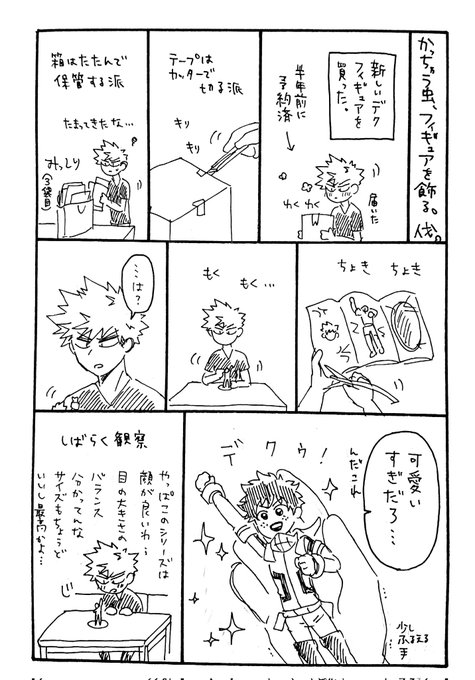 かっちゃう虫、フィギュアを飾る。伐。
新しいデク
フィギュアを
買った。
半年前に
予約済
わく
わく
届いた
テープは
カッターで
切る派
キリ
キリ
箱はたたんで
保管する派
たまってきたな…
みっしり
(3袋目)
ちょき
ちょき
もく
もく…
…は?
可愛い
すぎだろ…
んだこれ
デクゥ!
少し
ふるえる
手
しばらく観察
やっぱこのシリーズは
顔が良いわ…
目の大きさの
バランス
分かってんな
サイズもちょうど
いいし最高かよ…